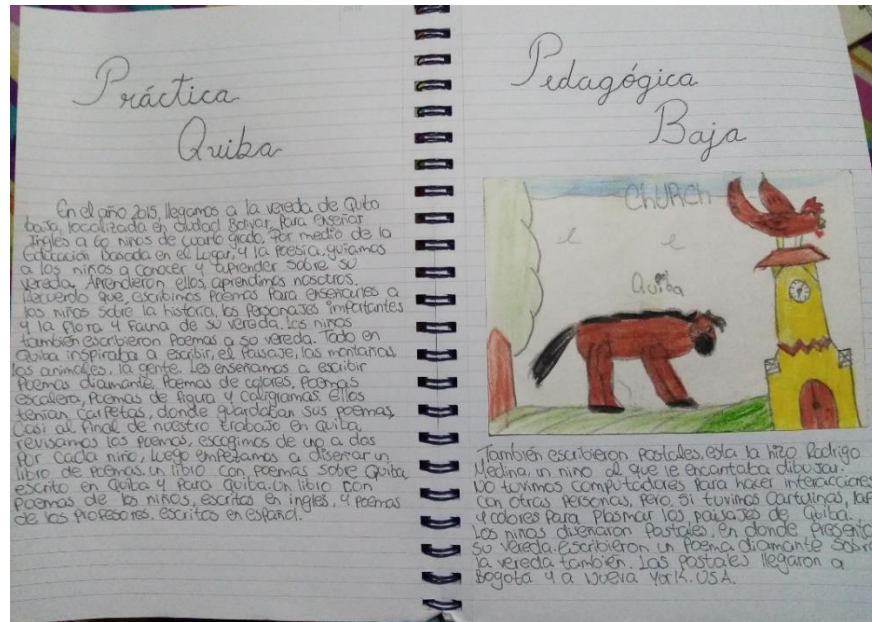 Práctica
Quiba
En el año 2015, llegamos a la vereda de Quiba
baja, localizada en ciudad Bolivar, para enseñar
Ingles a 60 niños de cuarto grado, Por medio de la
Educación Basada en el Lugar, y la Poesia, guiamos
a los niños a conocer y aprender sobre su
vereda, Aprendieron ellos, aprendimos nosotros.
Recuerdo que, escribimos Poemas Para enseñarles a
los niños sobre la historia, los Personajes importantes
y la flora y fauna de su vereda. Los niños
también escribieron Poemas a su vereda. Todo en
Quiba inspiraba a escribir, el Paisaje, las montañas
los animales, la gente. Les enseñamos a escribir
Poemas diamante, Poemas de colores, Poemas
escalera, Poemas de figura y caligramas Ellos
tenian carpetas, donde guardaban sus poemas,
Casi al final de nuestro trabajo en Quiba
revisamos los Poemas, escogimos de uno a dos
Por cada niño, luego empezamos a diseñar un
libro de Poemas. un libro con Poemas sobre Quiba
escrito en Quiba y Para Quiba. Un libro con
Poemas de los niños, escritos en ingles, y Poemas
de los Profesores, escritos en español.
Pedagógica
Baja
ChURCh
e e
Quiba
También escribieron Postales, esta la hizo Rodrigo
Medina, un niño al que le encantaba dibujar.
No tuvimos computadores Para hacer interacciones
Con otras Personas, Pero, Si tuvimos Cartulinas,
y colores Para Plasmar los paisajes de Quiba.
Los niños diseñaron Postales, en donde
su vereda. Escribieron un Poema diamante
la vereda también. Las Postales llegaron a
Bogotá y a Nueva York. USA.